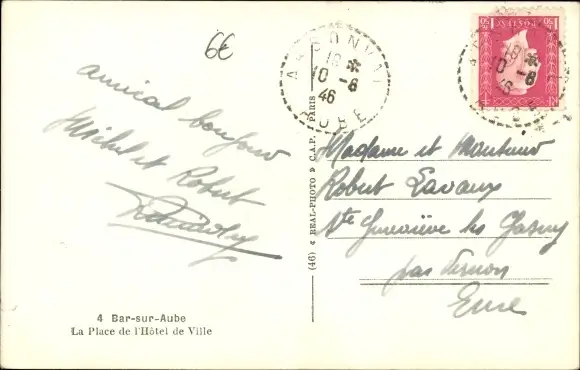 6€
amical bonjour
Michel et Robert
4 Bar-sur-Aube
La Place de l'Hôtel de Ville
(46) « REAL-PHOTO » C.A.P. PARIS
ARSONVAL
18 *
10 -8
46
AUBE
POSTES
Madame et Monsieur
Robert Lavaux
Ste Geneviève les Gasny
par Vernon
Eure